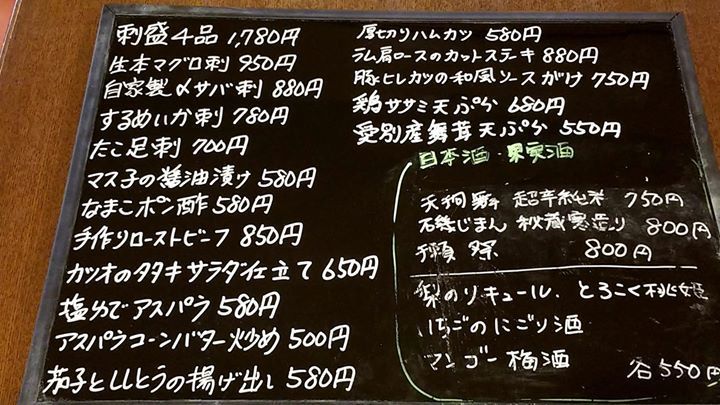 刺盛4品 1,780円
生本マグロ刺 950円
自家製〆サバ刺 880円
するめいか刺 780円
たこ足刺 700円
マス子の醤油漬け 580円
なまこポン酢 580円
手作りローストビーフ 850円
カツオのタタキサラダ仕立て 650円
塩ゆでアスパラ 580円
アスパラコーンバター炒め 500円
茄子とししとうの揚げ出し 580円
厚切りハムカツ 580円
ラム肩ロースのカットステキ 880円
豚ヒレカツの和風ソースがけ 750円
鶏ササミ天ぷら 680円
愛別産舞茸天ぷら 550円
日本酒・果実酒
天狗舞 超辛純米 750円
磯じまん 秘蔵寒造り 800円
獺祭 800円
梨のリキュール、とろこく桃姫
いちごのにごり酒
マンゴー梅酒 各550円